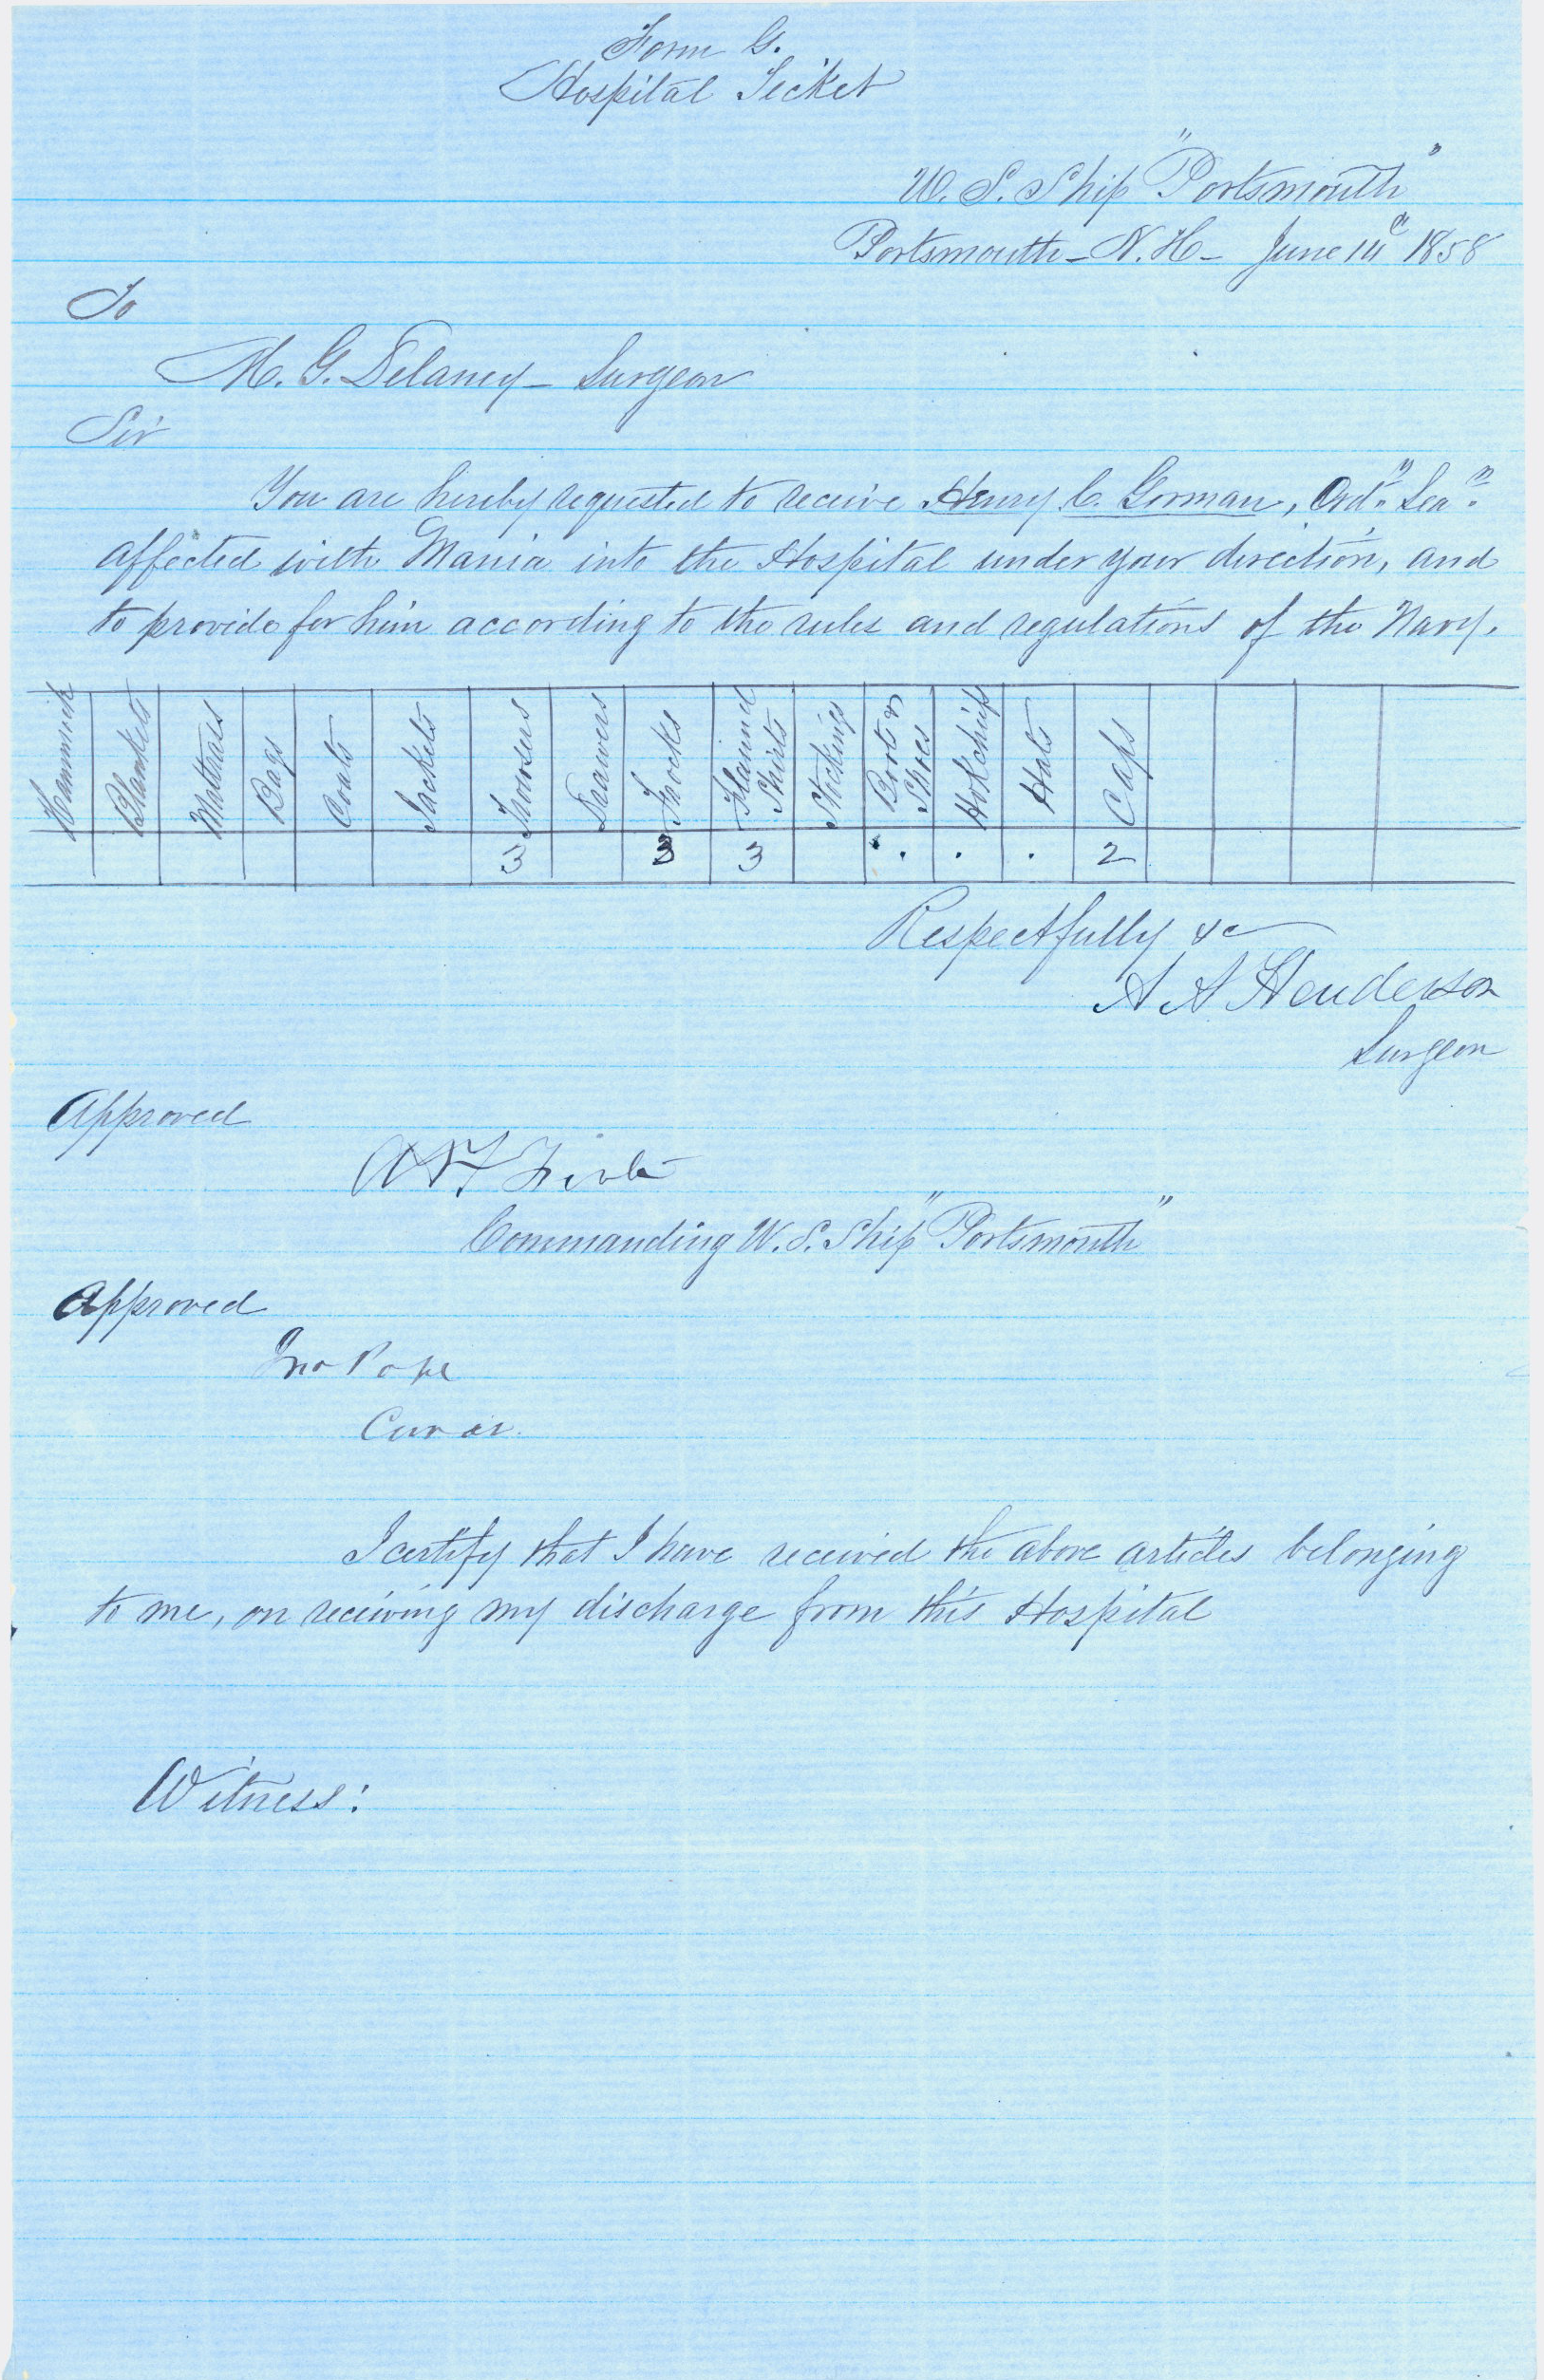 Form G.
Hospital Ticket
U. S. Ship "Portsmouth"
Portsmouth - N. H - June 14th 1858
To
M. G. Delaney - Surgeon
Sir
You are hereby requested to receive Henry C. Gorman, Ordy. Sean.
affected with Mania into the Hospital under your direction, and
to provide for him according to the rules and regulations of the Navy.
Hammick Blankets Mattrass Bags Coats Jackets Trowsers Drawers Frocks Flannel Shirts Stockings Boots & Shoes Hdkchiefs Hats Caps
3 3 3 . . . . 2
Respectfully &c
A A Henderson
Surgeon
Approved
Commanding U. S. Ship "Portsmouth"
Approved
Jno Pope
I certify that I have received the above articles belonging
to me, on receiving my discharge from this Hospital
Witness: